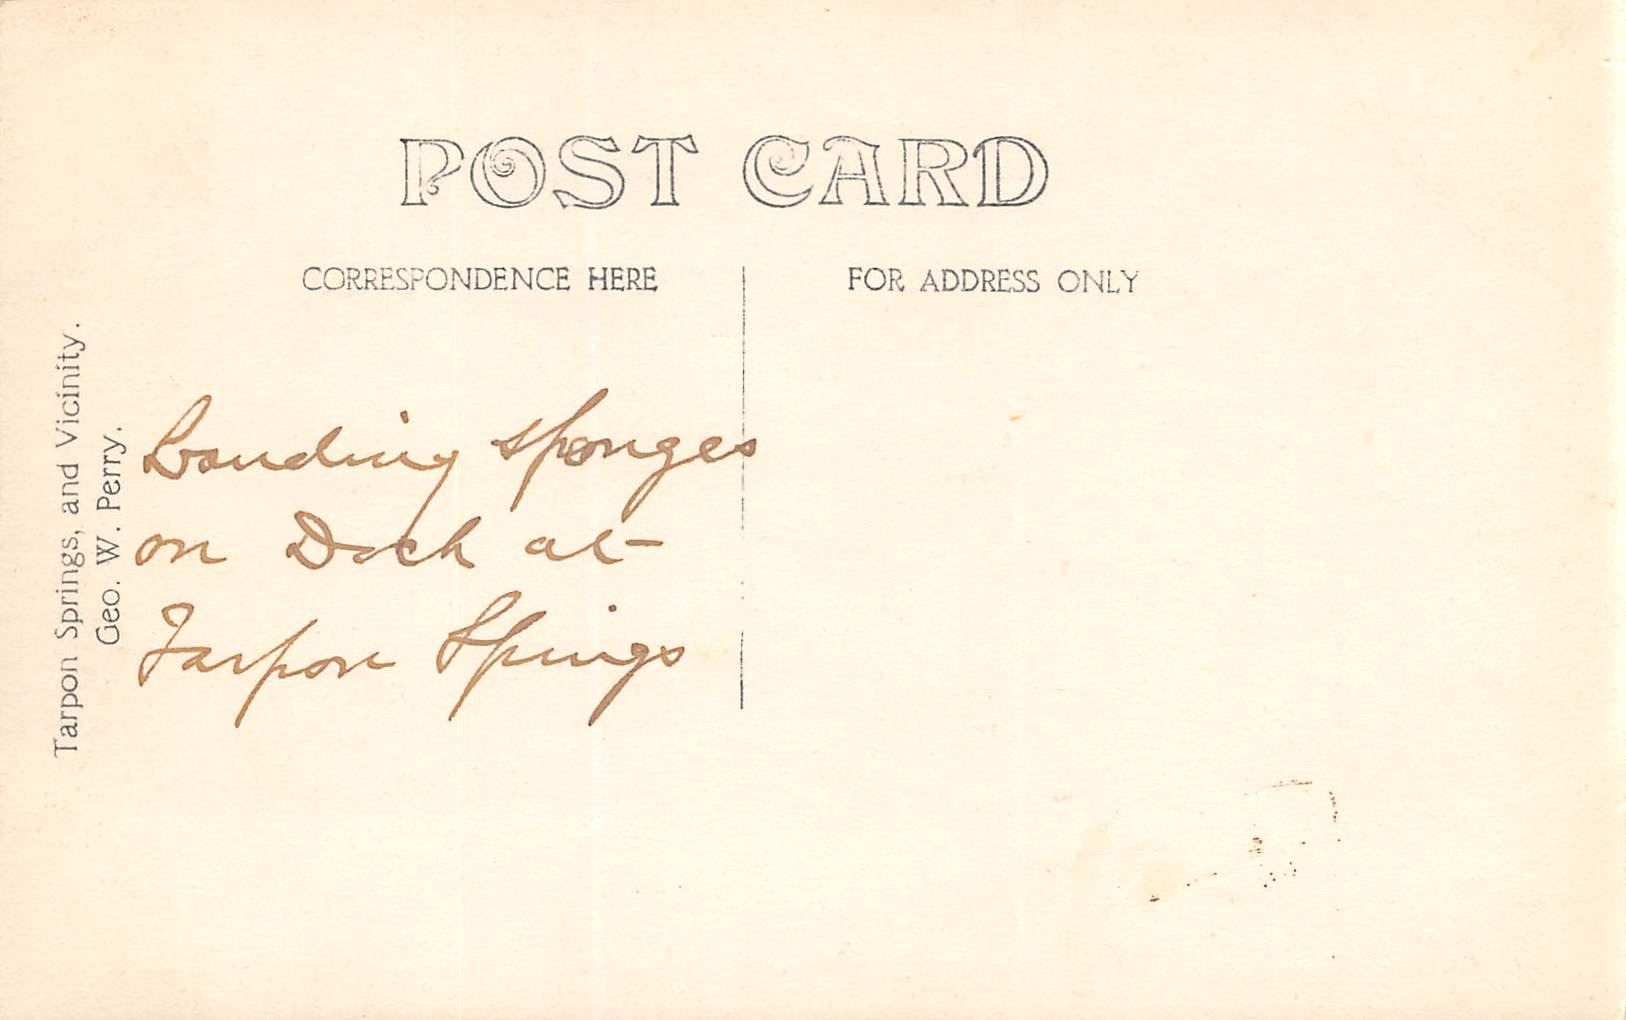 POST CARD
CORRESPONDENCE HERE
FOR ADDRESS ONLY
Tarpon Springs, and Vicinity.
Geo. W. Perry.
Landing sponges
on Dock at
Tarpon Springs